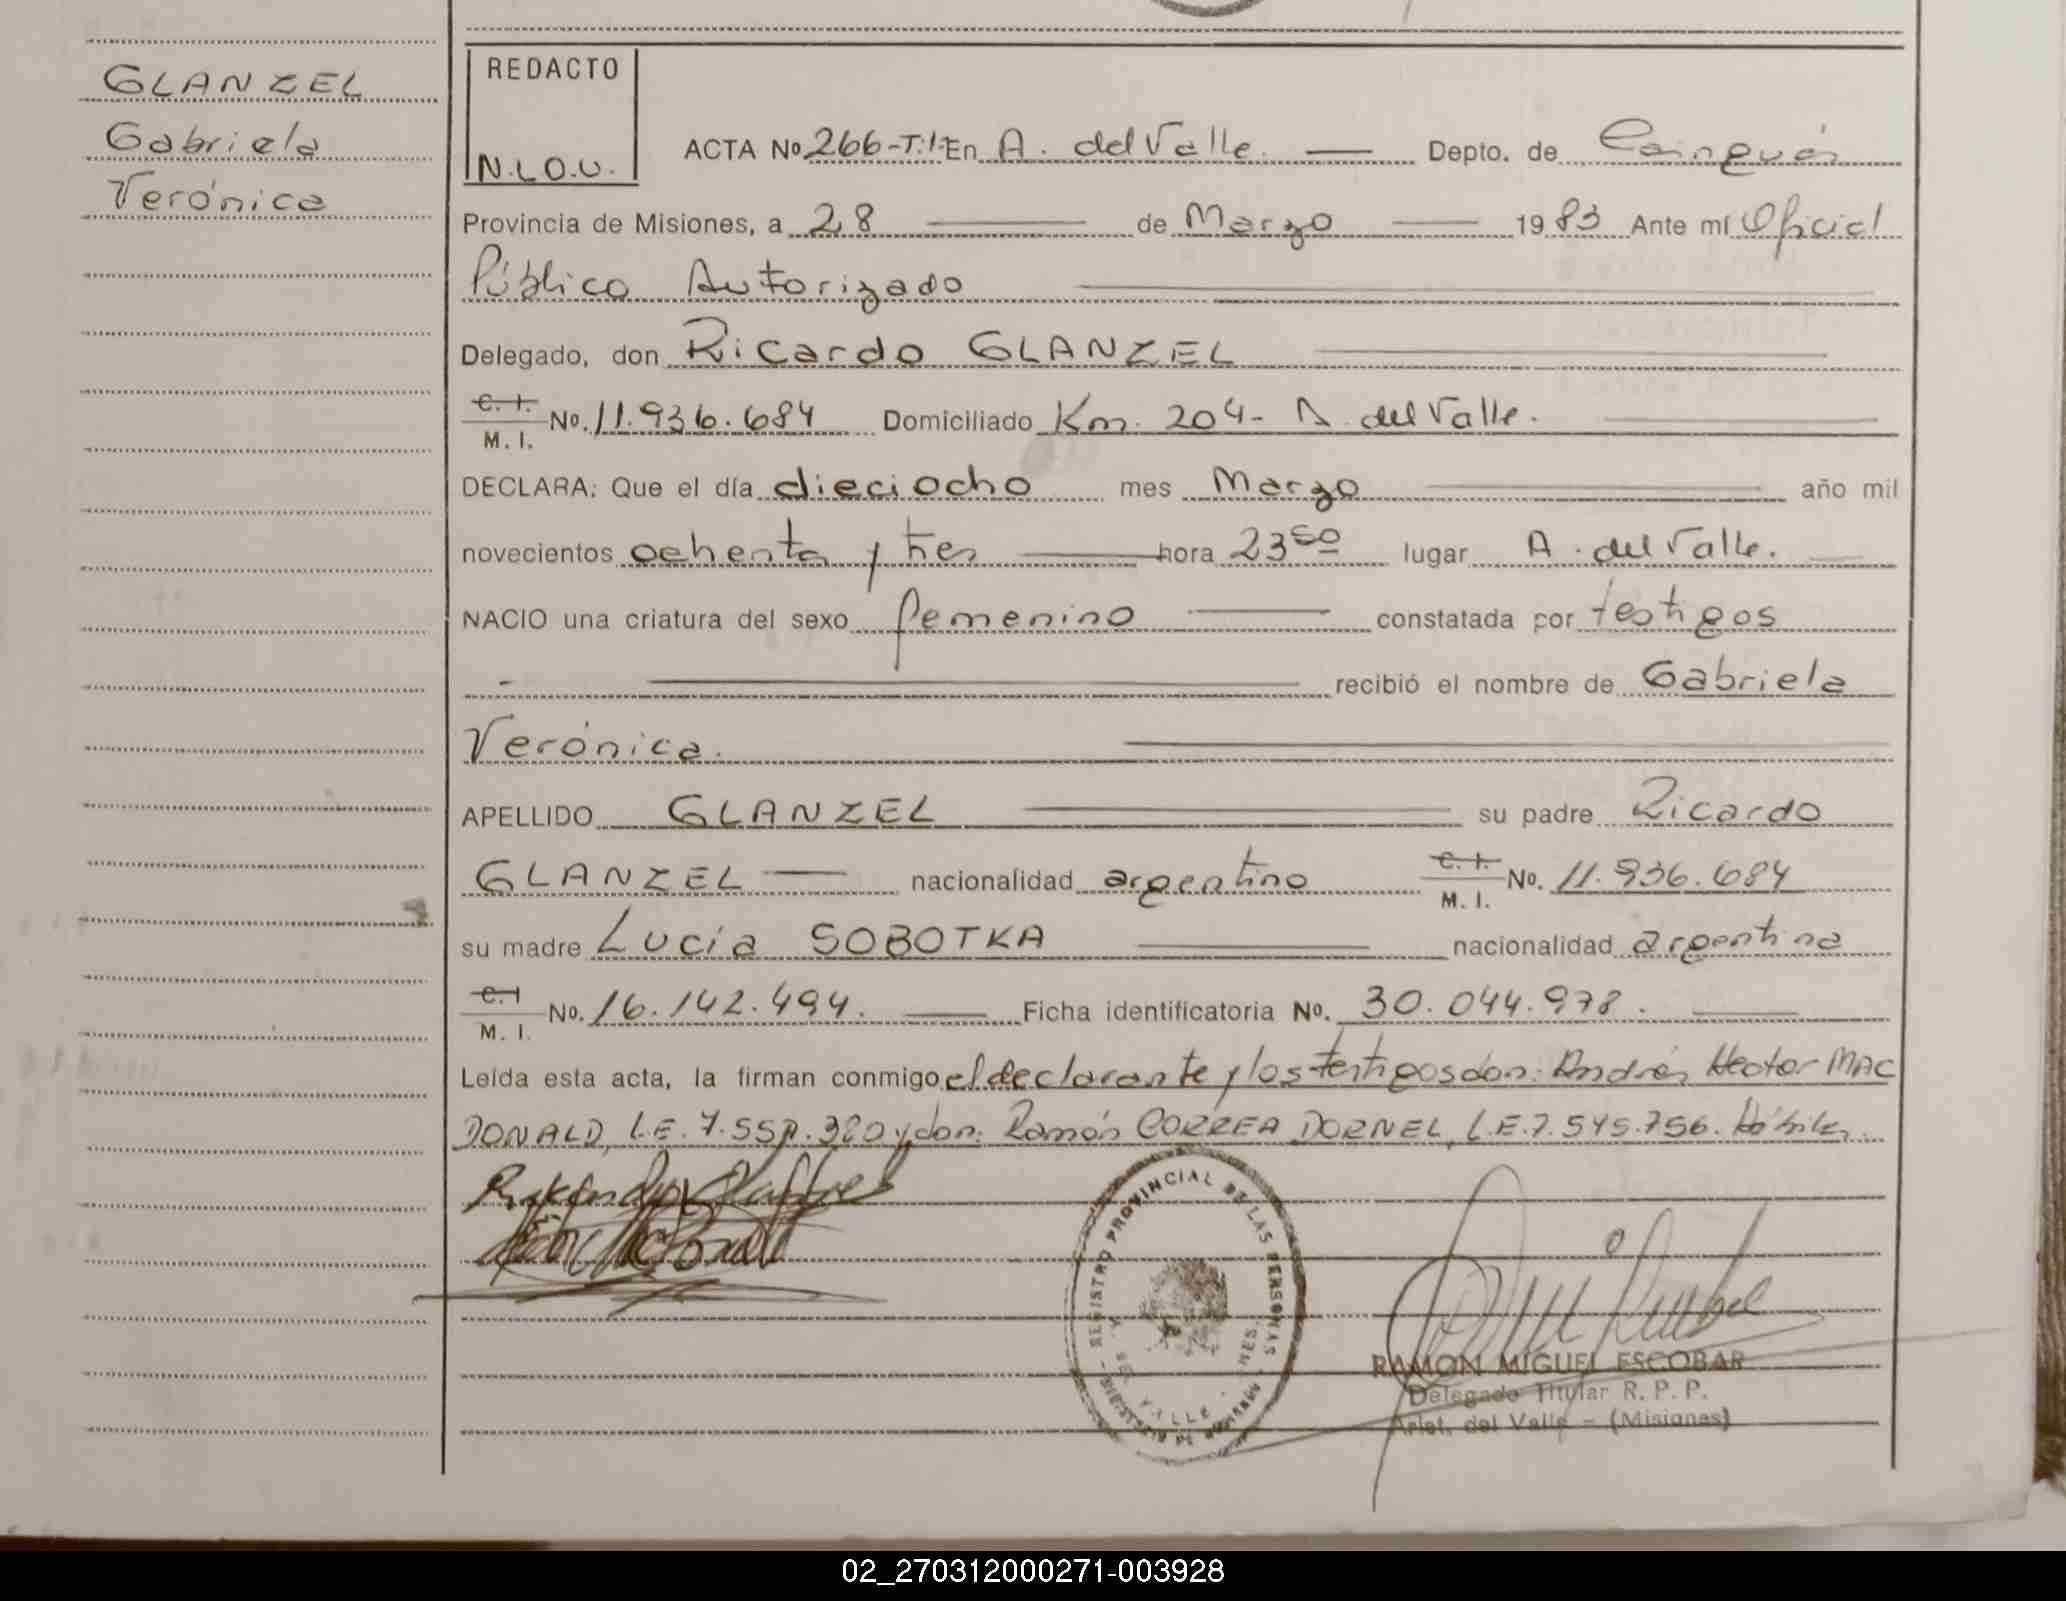 GLANZEL
Gabriela
Verónica
REDACTO
N.L.O.U.
ACTA No 266-T.I. En A. del Valle. Depto. de Cainguás
Provincia de Misiones, a 28 de Marzo 1983 Ante mí Oficial
Público Autorizado
Delegado, don Ricardo GLANZEL
C. I. M. I. No. 11.936.684 Domiciliado Km. 204- A. del Valle.
DECLARA: Que el día dieciocho mes Marzo año mil
novecientos ochenta y tres hora 23 lugar A. del Valle.
NACIO una criatura del sexo femenino constatada por testigos
recibió el nombre de Gabriela
Verónica.
APELLIDO GLANZEL su padre Ricardo
GLANZEL nacionalidad argentino C. I. M. I. No. 11.936.684
su madre Lucía SOBOTKA nacionalidad argentina
C. I M. I. No. 16.142.494. Ficha identificatoria No. 30.044.978.
Leída esta acta, la firman conmigo el declarante y los testigos don: Andrés Hector MAC
DONALD, L.E. y don: Ramón CORREA DORNEL, L.E. 7.545.756. Hábiles.
REGISTRO PROVINCIAL DE LAS PERSONAS
A. DEL VALLE - MNES.
RAMON MIGUEL ESCOBAR
Delegado Titular R. P. P.
Arist. del Valle - (Misiones)
02_270312000271-003928